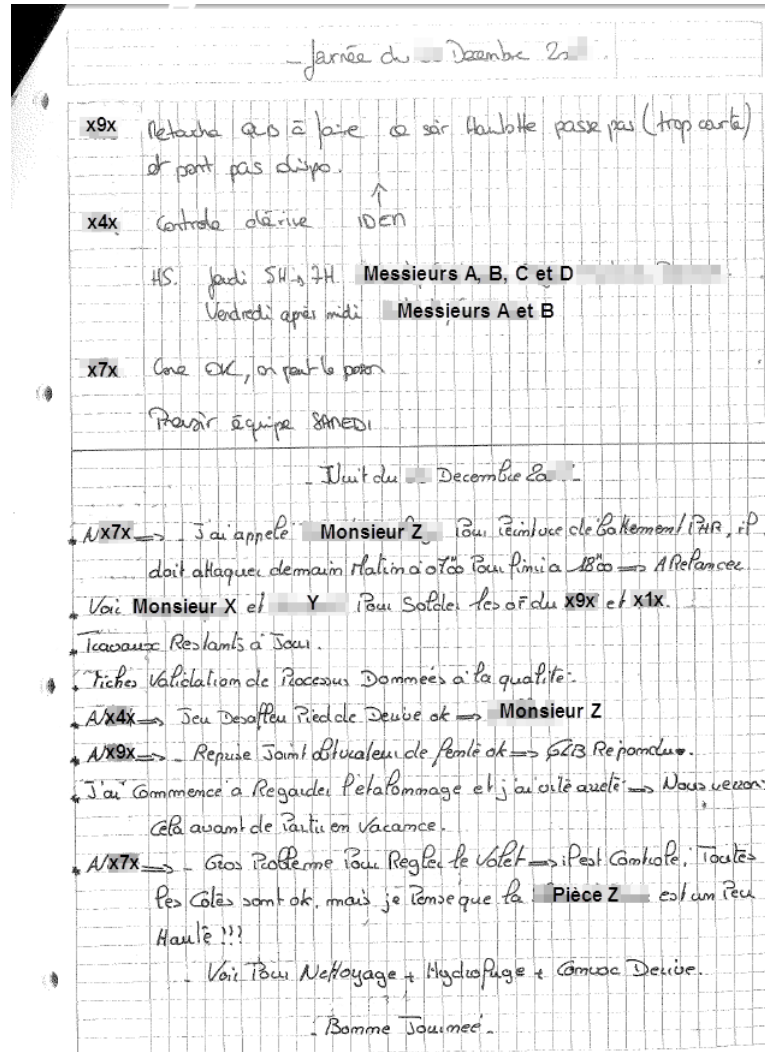 Journée du Decembre 2
x9x Retouche QRS à faire ce soir Haulotte passe pas (trop courte)
et pont pas dispo.
x4x Controle dérive IDEM
HS. Jeudi 5H → 7H Messieurs A, B, C et D
Vendredi après midi Messieurs A et B
x7x Cone OK, on peut le poser
Prevoir équipe SAMEDI
Nuit du Decembre 20
A/x7x => - J'ai appelé Monsieur Z Pour Peinture de Battement / PHR, il
doit attaquer demain Matin a 07h00 Pour finir a 18h00 => A Relancer
Voir Monsieur X et Y Pour Solder les of du x9x et x1x.
Travaux Restants à Jour.
Fiches Validation de Processus Données à la qualité.
A/x4x => Jeu Pied de Derive ok => Monsieur Z
A/x9x => - Reprise Joint obturateur de fente ok => Répondue.
J'ai Commencé a Regarder l'étalonnage et j'ai vite arreté => Nous verrons
cela avant de Partir en Vacance.
A/x7x => - Gros Problème Pour Regler le Volet => il est Controlé, Toutes
les Cotes sont ok, mais je Pense que la Pièce Z est un Peu
Haute !!!
- Voir Pour Nettoyage + Hydrofuge + Convoc Derive.
- Bonne Journeé -